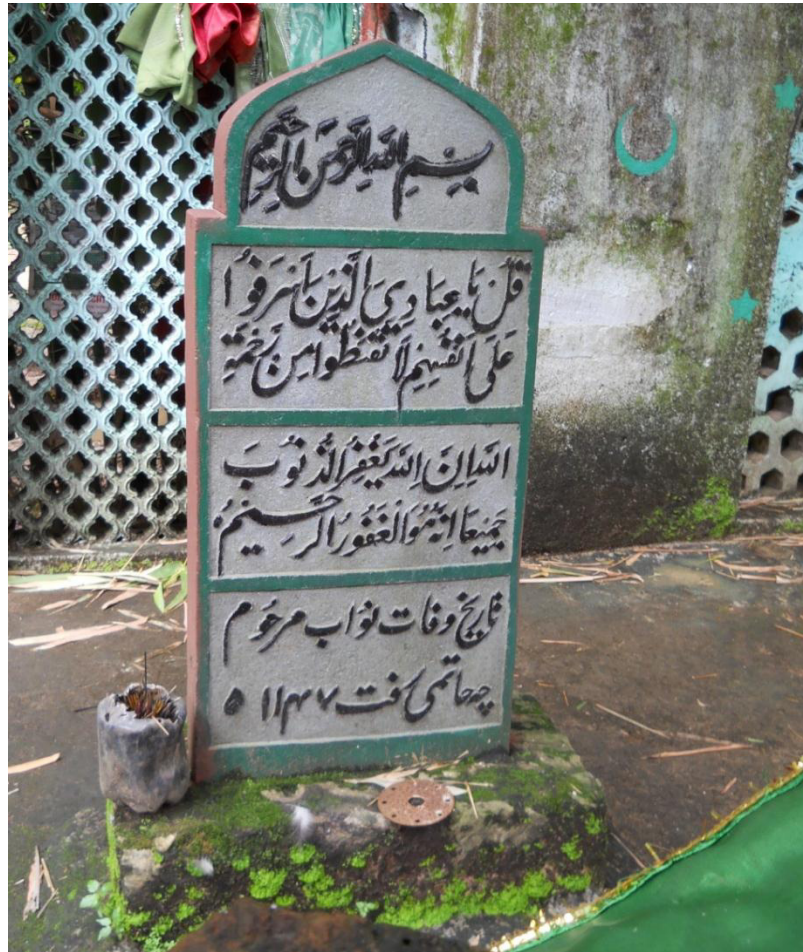 بِسْمِ اللهِ الرَّحْمٰنِ الرَّحِيْمِ
قُلْ يَا عِبَادِيَ الَّذِيْنَ اَسْرَفُوْا
عَلَى اَنْفُسِهِمْ لَا تَقْنَطُوْا مِنْ رَحْمَةِ
اللهِ اِنَّ اللهَ يَغْفِرُ الذُّنُوْبَ
جَمِيْعًا اِنَّهٗ هُوَ الْغَفُوْرُ الرَّحِيْمُ
تاریخ وفات نواب مرحوم
چہ حاتمی ۱۱۴۷ ھ